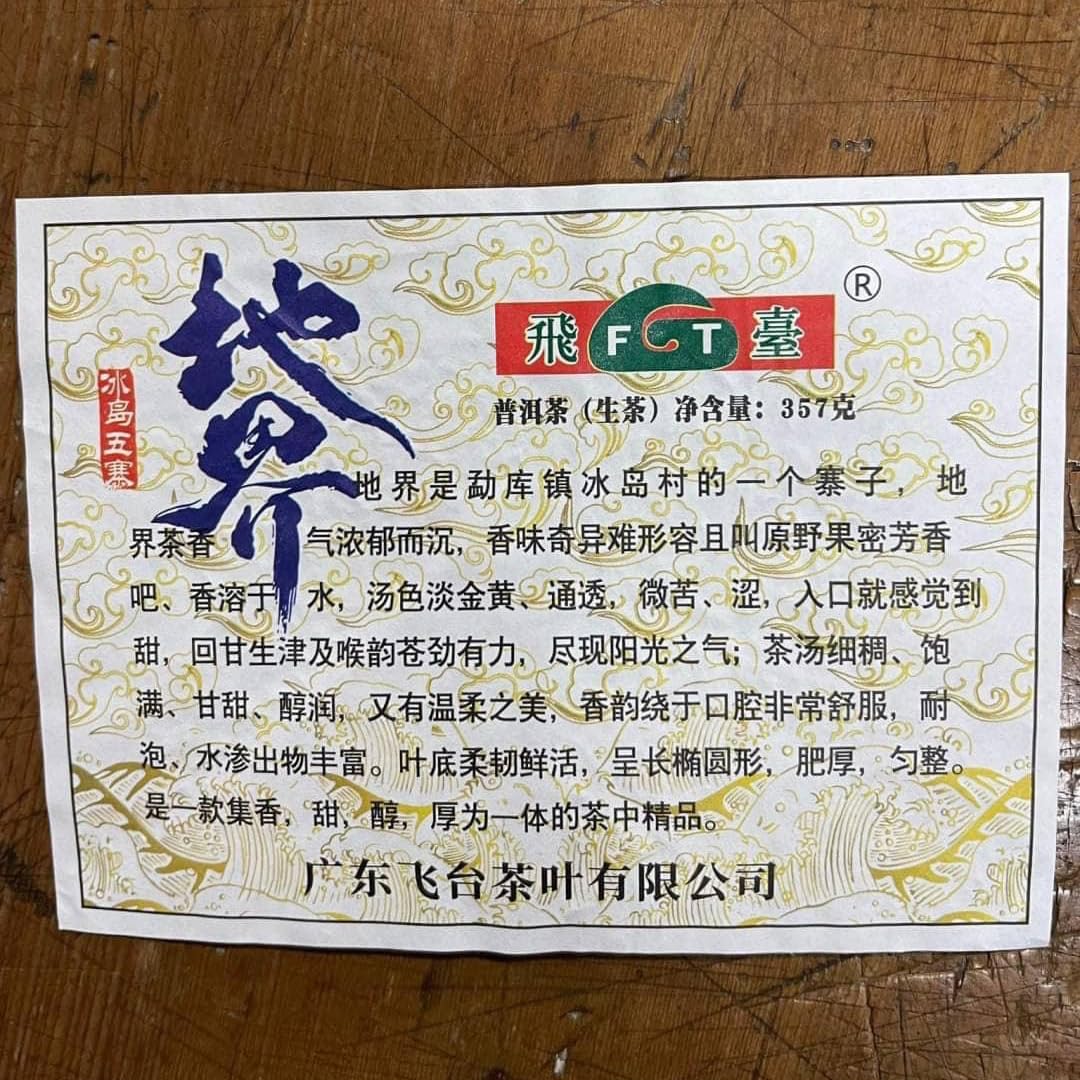 地界
冰岛五寨
飛 FGT 臺 ®
普洱茶（生茶）净含量：357克
地界是勐库镇冰岛村的一个寨子，地
界茶香气浓郁而沉，香味奇异难形容且叫原野果密芳香
吧、香溶于水，汤色淡金黄、通透，微苦、涩，入口就感觉到
甜，回甘生津及喉韵苍劲有力，尽现阳光之气；茶汤细稠、饱
满、甘甜、醇润，又有温柔之美，香韵绕于口腔非常舒服，耐
泡、水渗出物丰富。叶底柔韧鲜活，呈长椭圆形，肥厚，匀整。
是一款集香，甜，醇，厚为一体的茶中精品。
广东飞台茶叶有限公司